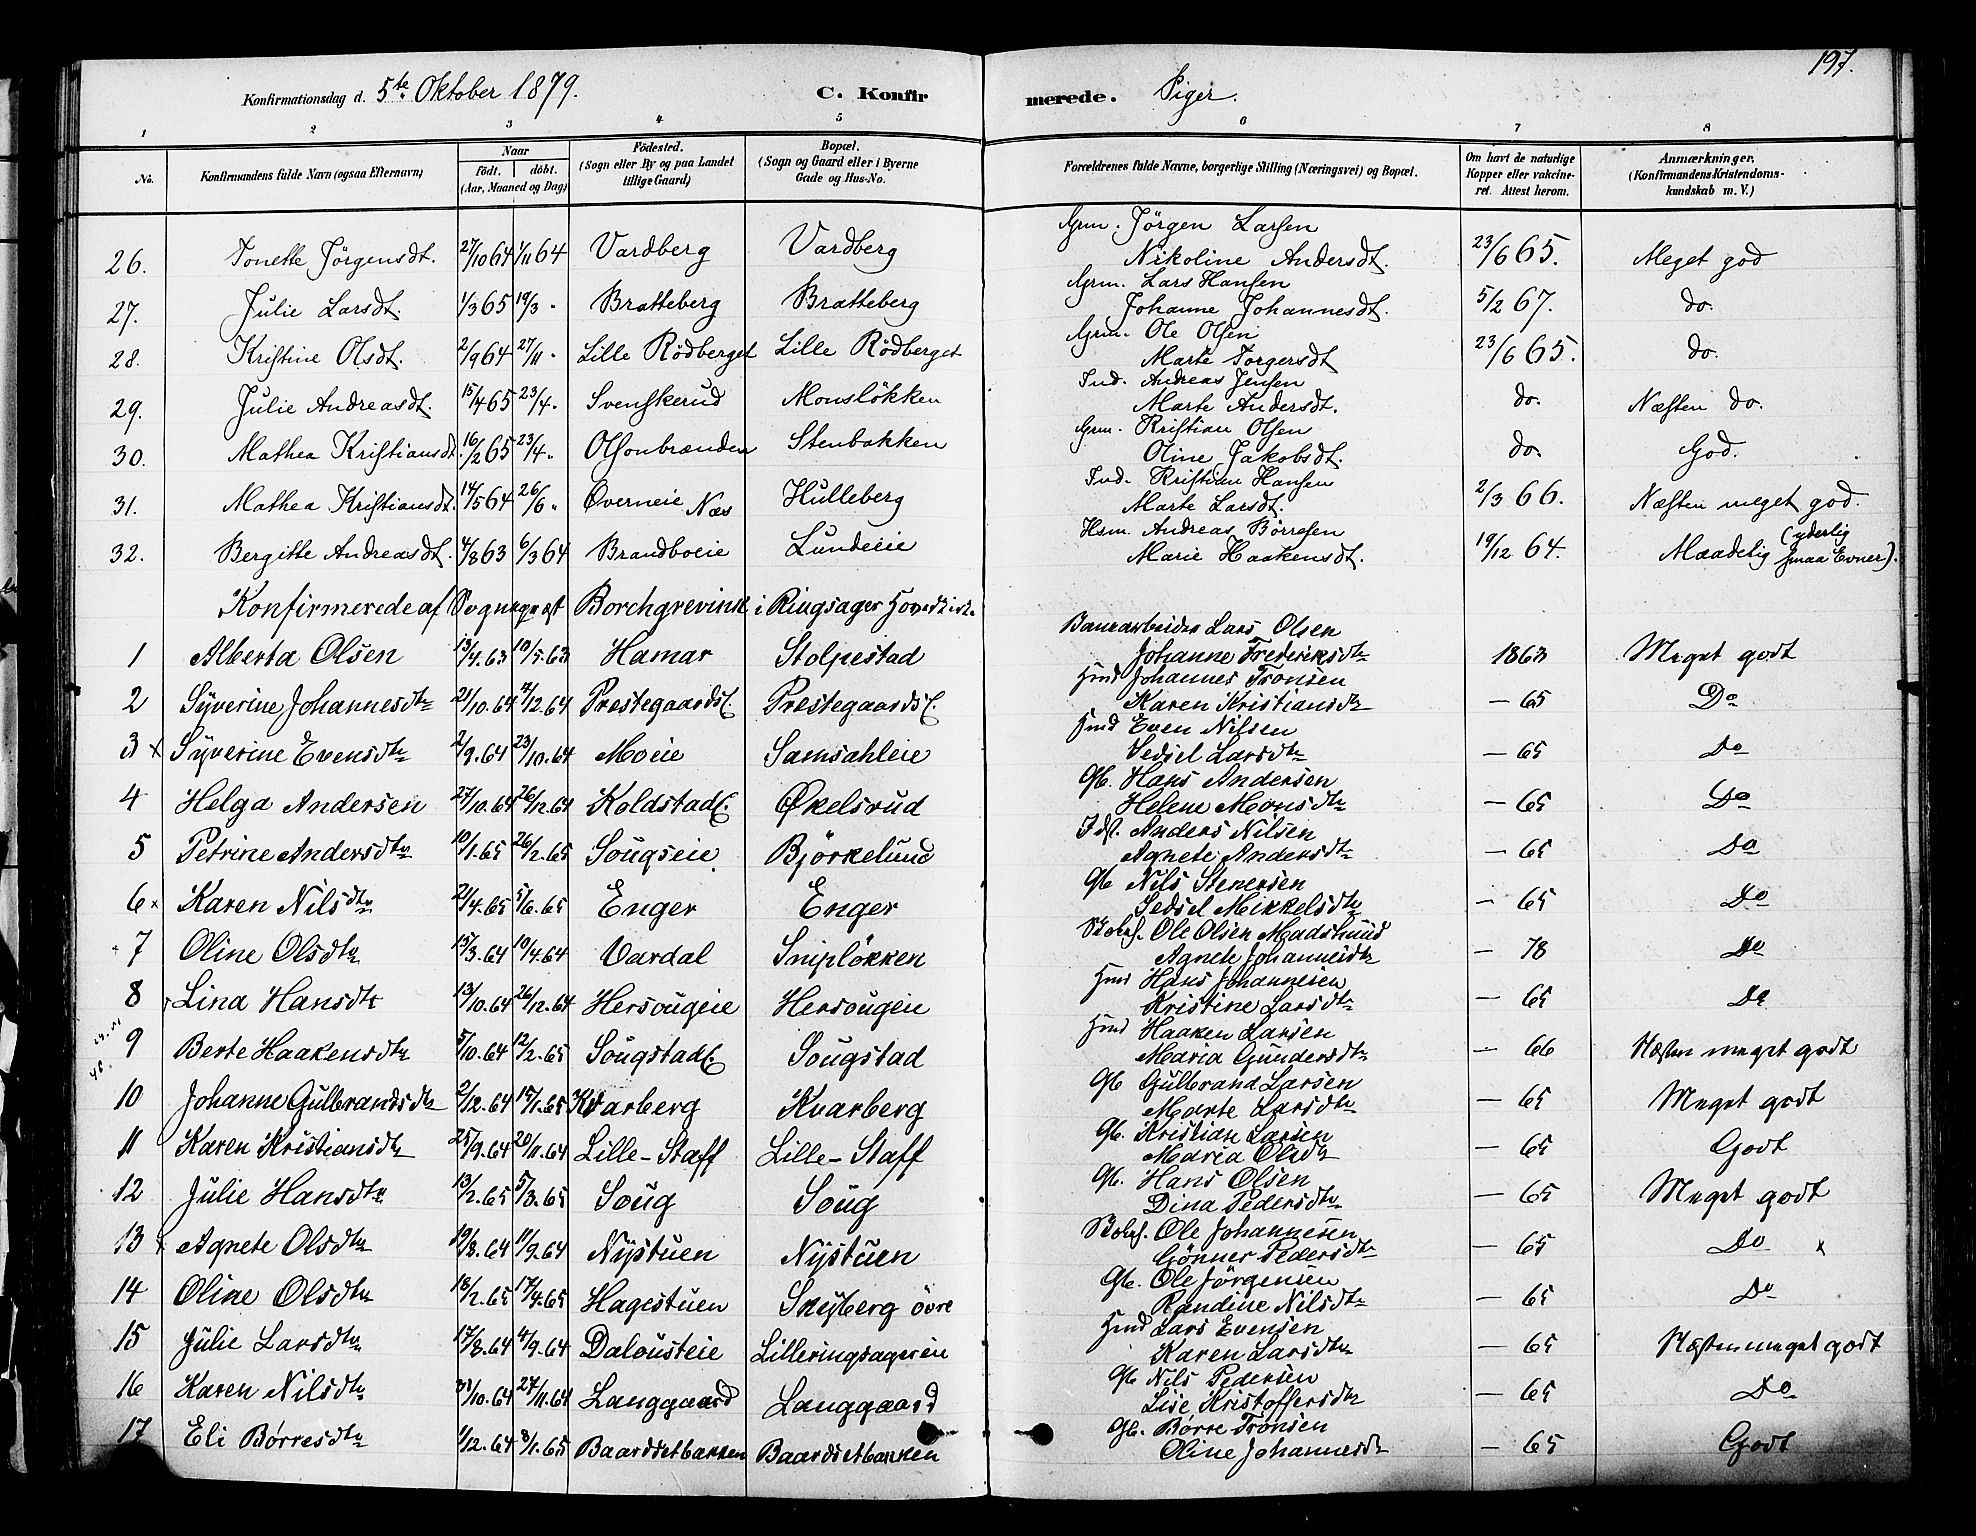 197.
Konfirmationsdag d. 5te Oktober 1879. C. Konfirmerede. Piger.
1 2 3 4 5 6 7 8
No. Konfirmandens fulde Navn (ogsaa Efternavn) Naar födt. döbt. (Aar, Maaned og Dag) Födested. (Sogn eller By og paa Landet tillige Gaard) Bopæl. (Sogn og Gaard eller i Byerne Gade og Hus-No. Forældrenes fulde Navne, borgerlige Stilling (Næringsvei) og Bopæl. Om havt de naturlige Kopper eller vakcineret. Attest herom. Anmærkninger. (Konfirmandens Kristendomskundskab m. V.)
26. Tonette Jörgensdt. 27/10 64 1/11 64 Vardberg Vardberg Grm. Jörgen Larsen Nikoline Andersdt. 23/6 65. Meget god
27. Julie Larsdt. 1/3 65 19/3 " Bratteberg Bratteberg Grm. Lars Hansen Johanne Johannesdt. 5/2 67. do.
28. Kristine Olsdt. 2/9 64 27/11 " Lille Rödberget Lille Rödberget Grm. Ole Olsen Marte Torgersdt 23/6 65. do.
29. Julie Andreasdt. 15/4 65 23/4 " Svenskerud Monslökken Ind. Andreas Jensen Marte Andersdt. do. Næsten do.
30. Mathea Kristiansdt. 16/2 65 23/4 " Olsonbrænden Stenbakken Grm. Kristian Olsen Oline Jakobsdt. do. God.
31. Mathea Kristiansdt. 14/5 64 26/6 " Överneie Næs Hulleberg Ind. Kristian Hansen Marte Larsdt. 2/3 66. Næsten meget god.
32. Bergitte Andreasdt. 4/8 63 6/3 64 Brandboeie Lundeie Hsm. Andreas Börresen Marie Haakensdt. 19/12 64. Maadelig (yderlig smaa Evner).
Konfirmerede af Sogneprest Borchgrevink i Ringsager Hovedkirke
1 Alberta Olsen 13/4.63 10/5.63 Hamar Stolpestad Banearbeider Lars Olsen Johanne Frederiksdtr 1863 Meget godt
2 Syverine Johannesdtr 21/10.64 4/12.64 Prestegaardsf. Prestegaardsf. Hmd Johannes Tronsen Karen Kristiansdtr — 65 Do
3 x Syverine Evensdtr 2/9.64 23/10.64 Moeie Samsahleie Hmd Even Nilsen Sedsel Larsdtr — 65 Do
4 Helga Andersen 27/10.64 26/12.64 Koldstadf. Økelsrud Gb. Hans Andersen Helene Monsdtr — 65 Do
5 Petrine Andersdtr 10/1.65 26/2.65 Sougseie Björkelund Idst. Anders Nilsen Agnete Andersdtr — 65 Do
6 x Karen Nilsdtr 21/4.65 5/6.65 Enger Enger Gb Nils Stenersen Sedsel Mikkelsdtr — 65 Do
7 Oline Olsdtr 15/3.64 10/4.64 Vardal Sniplökken Ole Olsen Madshuus Agnete Johannesdtr — 78 Do
8 Lina Hansdtr 13/10.64 26/12.64 Hersougeie Hersougeie Hmd Hans Johannesen Kristine Larsdtr — 65 Do
9 Berte Haakensdtr 5/10.64 12/2.65 Sougstadf. Sougstad Hmd Haaken Larsen Maria Gundersdtr — 66 Næsten meget godt
10 Johanne Gulbrandsdtr 2/12.64 15/1.65 Kvarberg Kvarberg Gb Gulbrand Larsen Marte Larsdtr — 65 Meget godt
11 Karen Kristiansdtr 25/9.64 20/11.64 Lille-Staff Lille-Staff Gb. Kristian Larsen Maria Olsdtr — 65 Godt
12 Julie Hansdtr 13/2.65 5/3.65 Soug Soug Gb. Hans Olsen Dina Pedersdtr — 65 Meget godt
13 x Agnete Olsdtr 19/8.64 11/9.64 Nystuen Nystuen Ole Johannesen Gönner Pedersdtr — 65 Do x
14 Oline Olsdtr 18/2.65 17/4.65 Hagestuen Skyberg övre Gb. Ole Jörgensen Randine Nilsdtr — 65 Do
15 Julie Larsdtr 17/8.64 4/9.64 Dalousteie Lilleringsagereie Hmd Lars Evensen Karen Larsdtr — 65 Næsten meget godt
16 Karen Nilsdtr 31/10.64 27/11.64 Langgaard Langgaard Gb Nils Pedersen Lise Kristoffersdtr — 65 Do
17 Eli Börresdtr 1/12.64 8/1.65 Baardsetbakken Baardsetbakken Gb. Börre Tronsen Oline Johannesdtr — 65 Godt